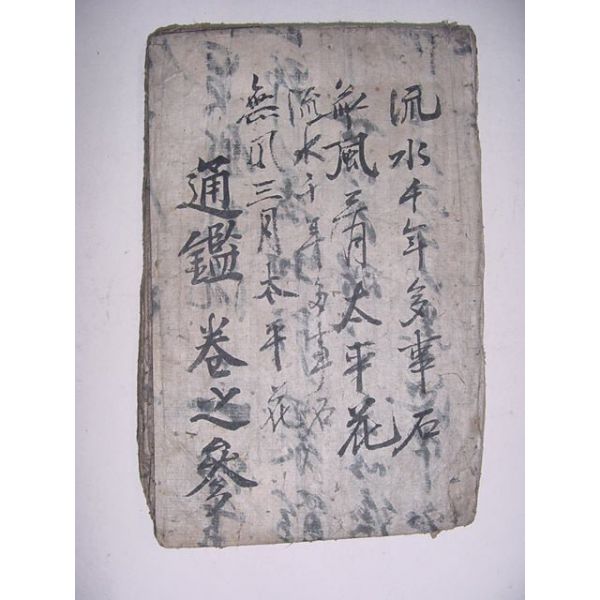 流水千年多事石
無風三月太平花
流水千年多事石
無風三月太平花
通鑑卷之參